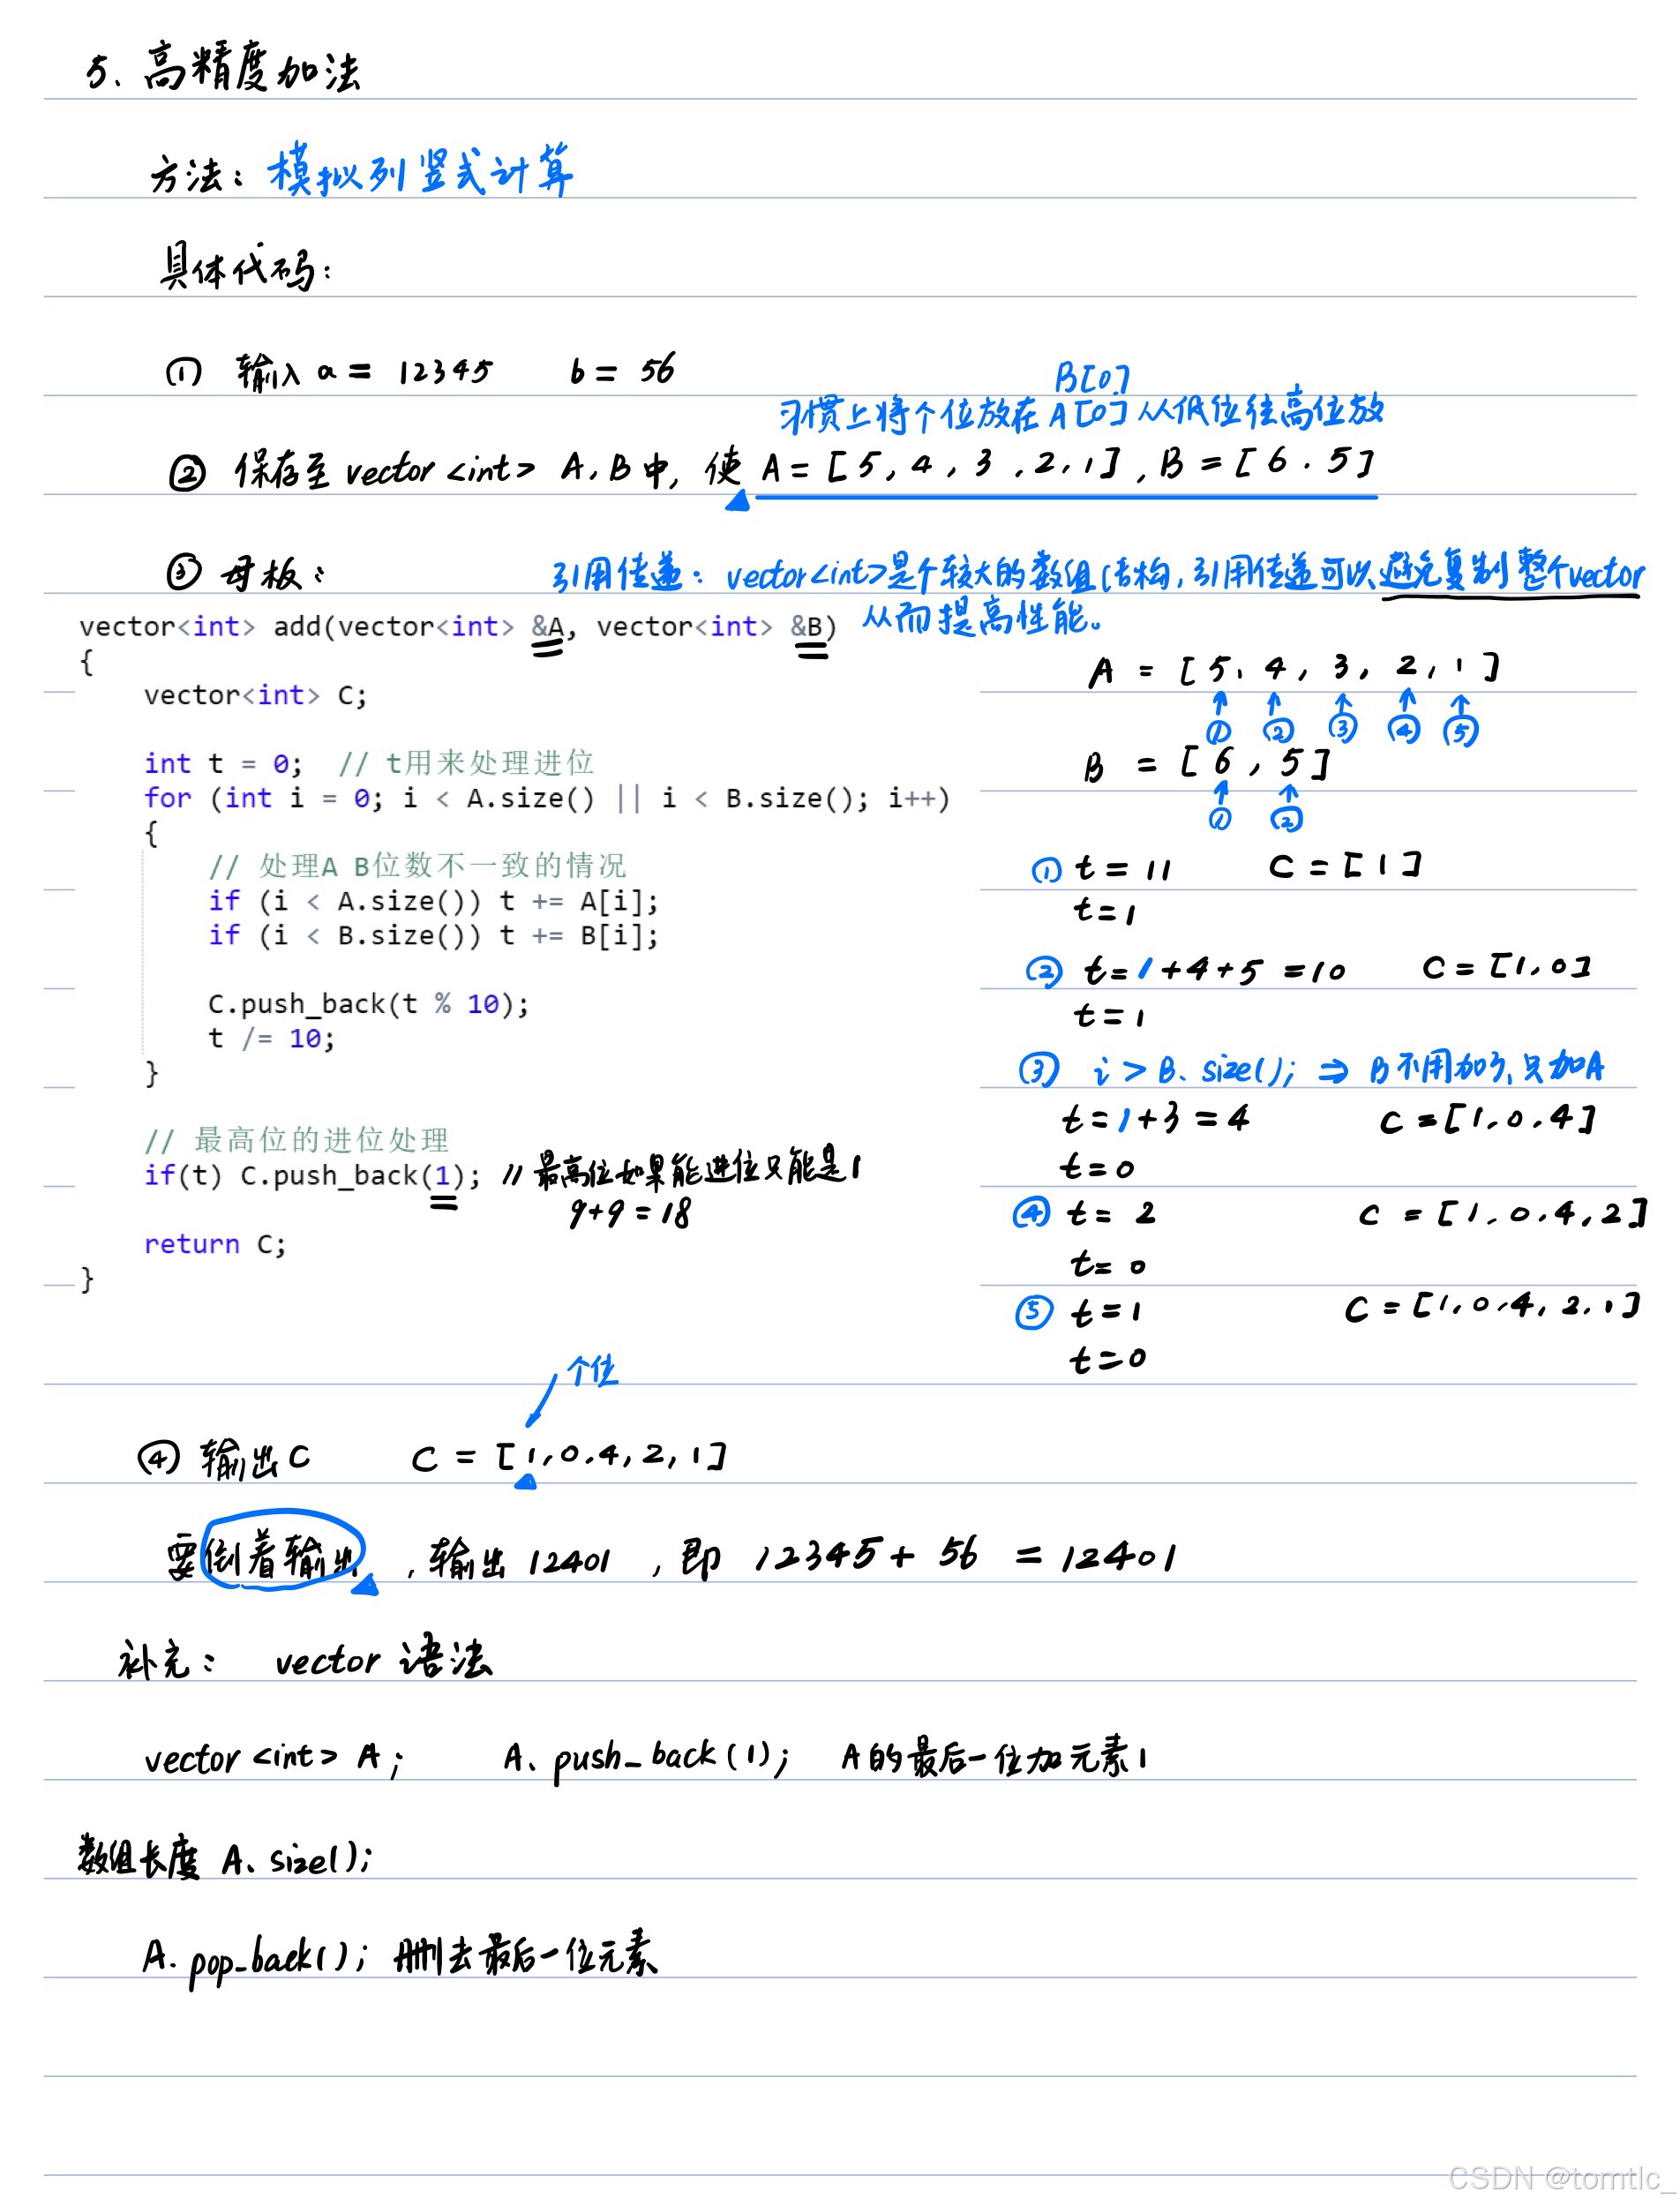 5. 高精度加法
方法：模拟列竖式计算
具体代码：
① 输入 a = 12345 b = 56
B[0]
习惯上将个位放在 A[0] 从低位往高位放
② 保存至 vector<int> A, B 中, 使 A = [5, 4, 3, 2, 1], B = [6. 5]
③ 母板：
引用传递：vector<int>是个较大的数组结构, 引用传递可以避免复制整个vector
从而提高性能。
vector<int> add(vector<int> &A, vector<int> &B)
{
vector<int> C;
int t = 0; // t用来处理进位
for (int i = 0; i < A.size() || i < B.size(); i++)
{
// 处理A B位数不一致的情况
if (i < A.size()) t += A[i];
if (i < B.size()) t += B[i];
C.push_back(t % 10);
t /= 10;
}
// 最高位的进位处理
if(t) C.push_back(1); // 最高位如果能进位只能是1
9+9=18
return C;
}
A = [5, 4, 3, 2, 1]
① ② ③ ④ ⑤
B = [6, 5]
① ②
① t = 11 C = [1]
t = 1
② t = 1+4+5 = 10 C = [1, 0]
t = 1
③ i > B.size(); ⇒ B不用加了, 只加A
t = 1+3 = 4 C = [1, 0, 4]
t = 0
④ t = 2 C = [1, 0, 4, 2]
t = 0
⑤ t = 1 C = [1, 0, 4, 2, 1]
t = 0
个位
④ 输出C C = [1, 0, 4, 2, 1]
要倒着输出, 输出 12401, 即 12345 + 56 = 12401
补充： vector 语法
vector<int> A; A.push_back(1); A的最后一位加元素1
数组长度 A.size();
A.pop_back(); 删去最后一位元素
CSDN @tomtlc_